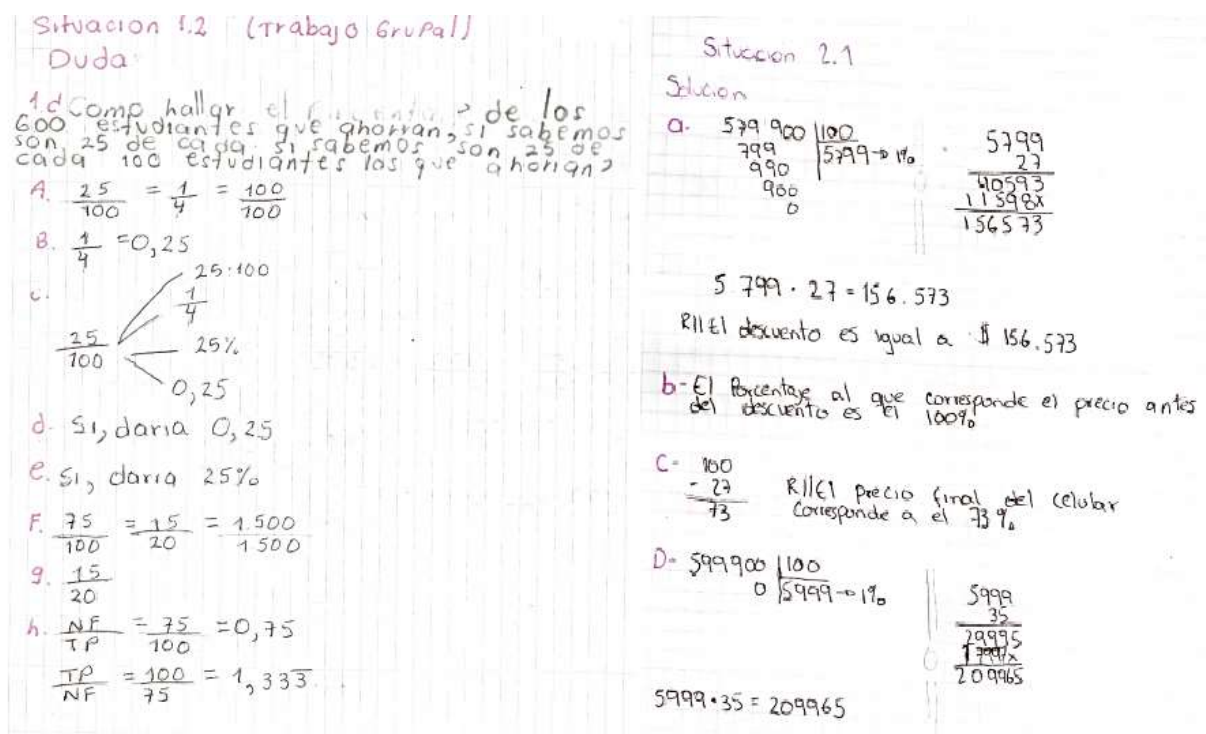 Situacion 1.2 (Trabajo Grupal)
Duda:
1.d Como hallar el de los
600 estudiantes que ahorran, si sabemos
son 25 de cada si sabemos son 25 de
cada 100 estudiantes los que ahorran?
A. 25/100 = 1/4 = 100/100
B. 1/4 = 0,25
c.
25:100
1/4
25/100
25%
0,25
d. Si, daria 0,25
e. Si, daria 25%
F. 75/100 = 15/20 = 1.500/1500
g. 15/20
h. NF/TP = 75/100 = 0,75
TP/NF = 100/75 = 1,333
Situacion 2.1
Solucion
a. 579 900 |100
799 5799→1%
990
900
0
5799
27
40593
11598x
156573
5.799 · 27 = 156.573
R// El descuento es igual a $ 156.573
b- El Porcentaje al que corresponde el precio antes
del descuento es el 100%
C- 100
- 27
73
R// El precio final del celular
Corresponde a el 73%
D- 599900 |100
0 5999→1%
5999
35
29995
17997x
209965
5999·35 = 209965